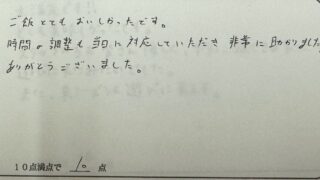 ご飯とてもおいしかったです。
時間の調整も当日に対応していただき非常に助かりました
ありがとうございました。
10点満点で 10 点